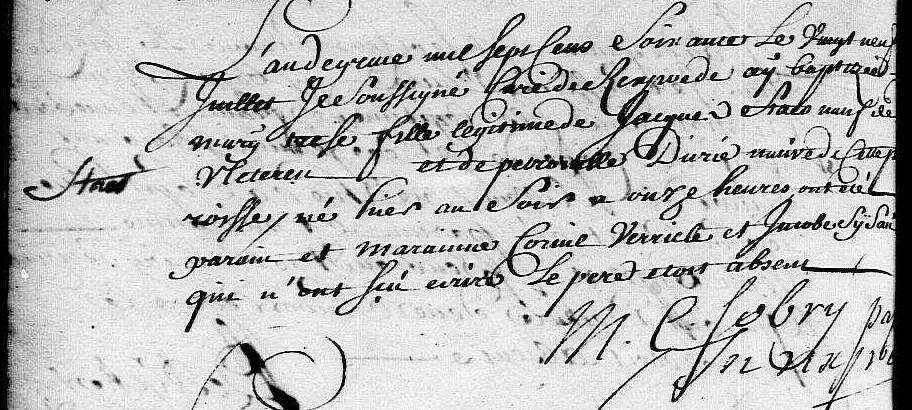 L'an de grace mil sept Cens Soixante Le vingt neuf
Juillet Je Soussigné Curé de Rexpoede ay baptizé
mary trese fille legitime de Jacques Staes neuf de
et de petronille Durié naive de Cette p
Staes
roisse, né hier au Soir a onze heures ont été
parain et maraine Corine Verriele et Jacobe
qui n'ont sçu ecrire Le pere etoit absent
M. C. Sobry pa